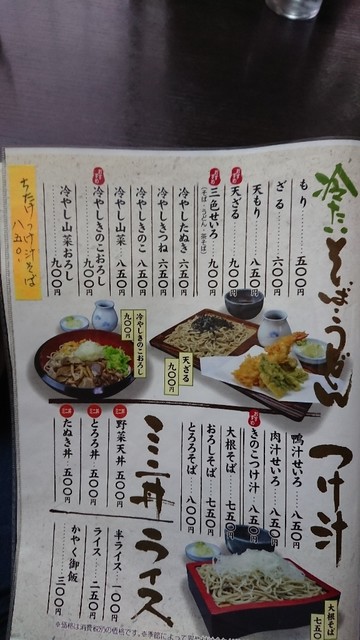 冷たいそば・うどん
もり 五〇〇円
ざる 六〇〇円
天もり 八五〇円
天ざる 九〇〇円
三色せいろ 九〇〇円
(そば・うどん・茶そば)
冷やしたぬき 六五〇円
冷やしきつね 六五〇円
冷やしきのこ 八五〇円
冷やし山菜 八五〇円
冷やしきのこおろし 九〇〇円
冷やし山菜おろし 九〇〇円
ちたけつけ汁そば
八五〇.
冷やしきのこおろし
九〇〇円
天ざる
九〇〇円
つけ汁
鴨汁せいろ 八五〇円
肉汁せいろ 八五〇円
きのこつけ汁 八五〇円
大根そば 七五〇円
おろしそば 七五〇円
とろろそば 八〇〇円
ミニ丼
野菜天丼 五〇〇円
とろろ丼 五〇〇円
たぬき丼 五〇〇円
ライス
半ライス 一〇〇円
ライス 二五〇円
かやく御飯 三〇〇円
大根そば
七五〇
※価格は消費税込の価格です。